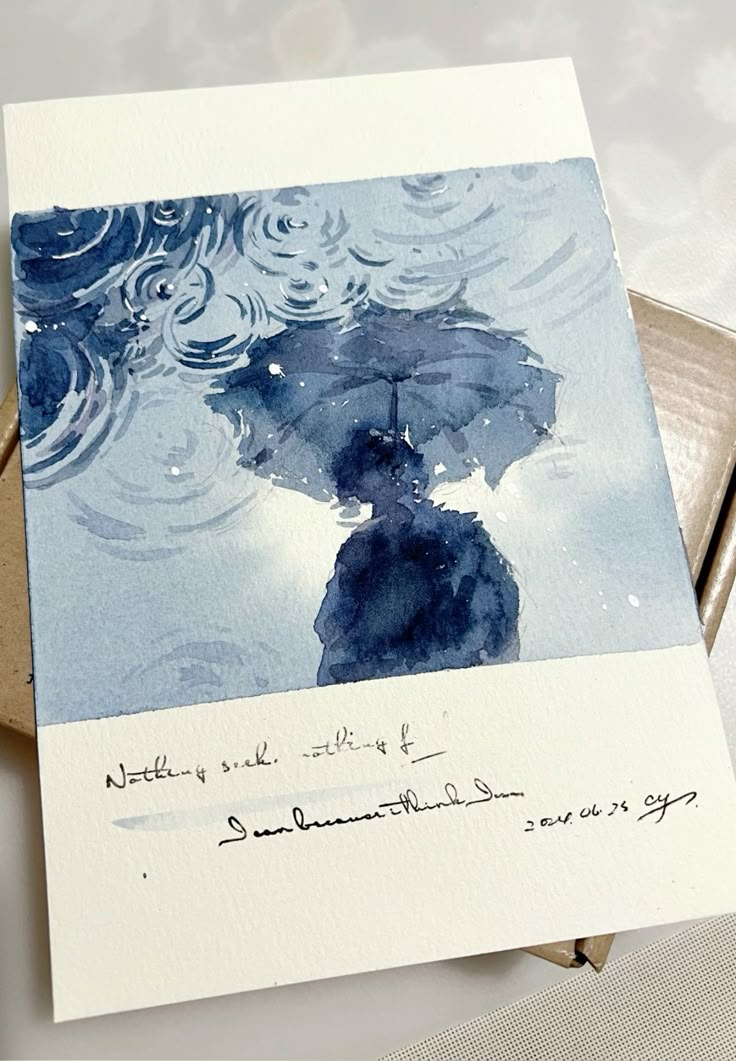 Nothing seek. nothing f
I can because i think I can
2024.06.25 cy